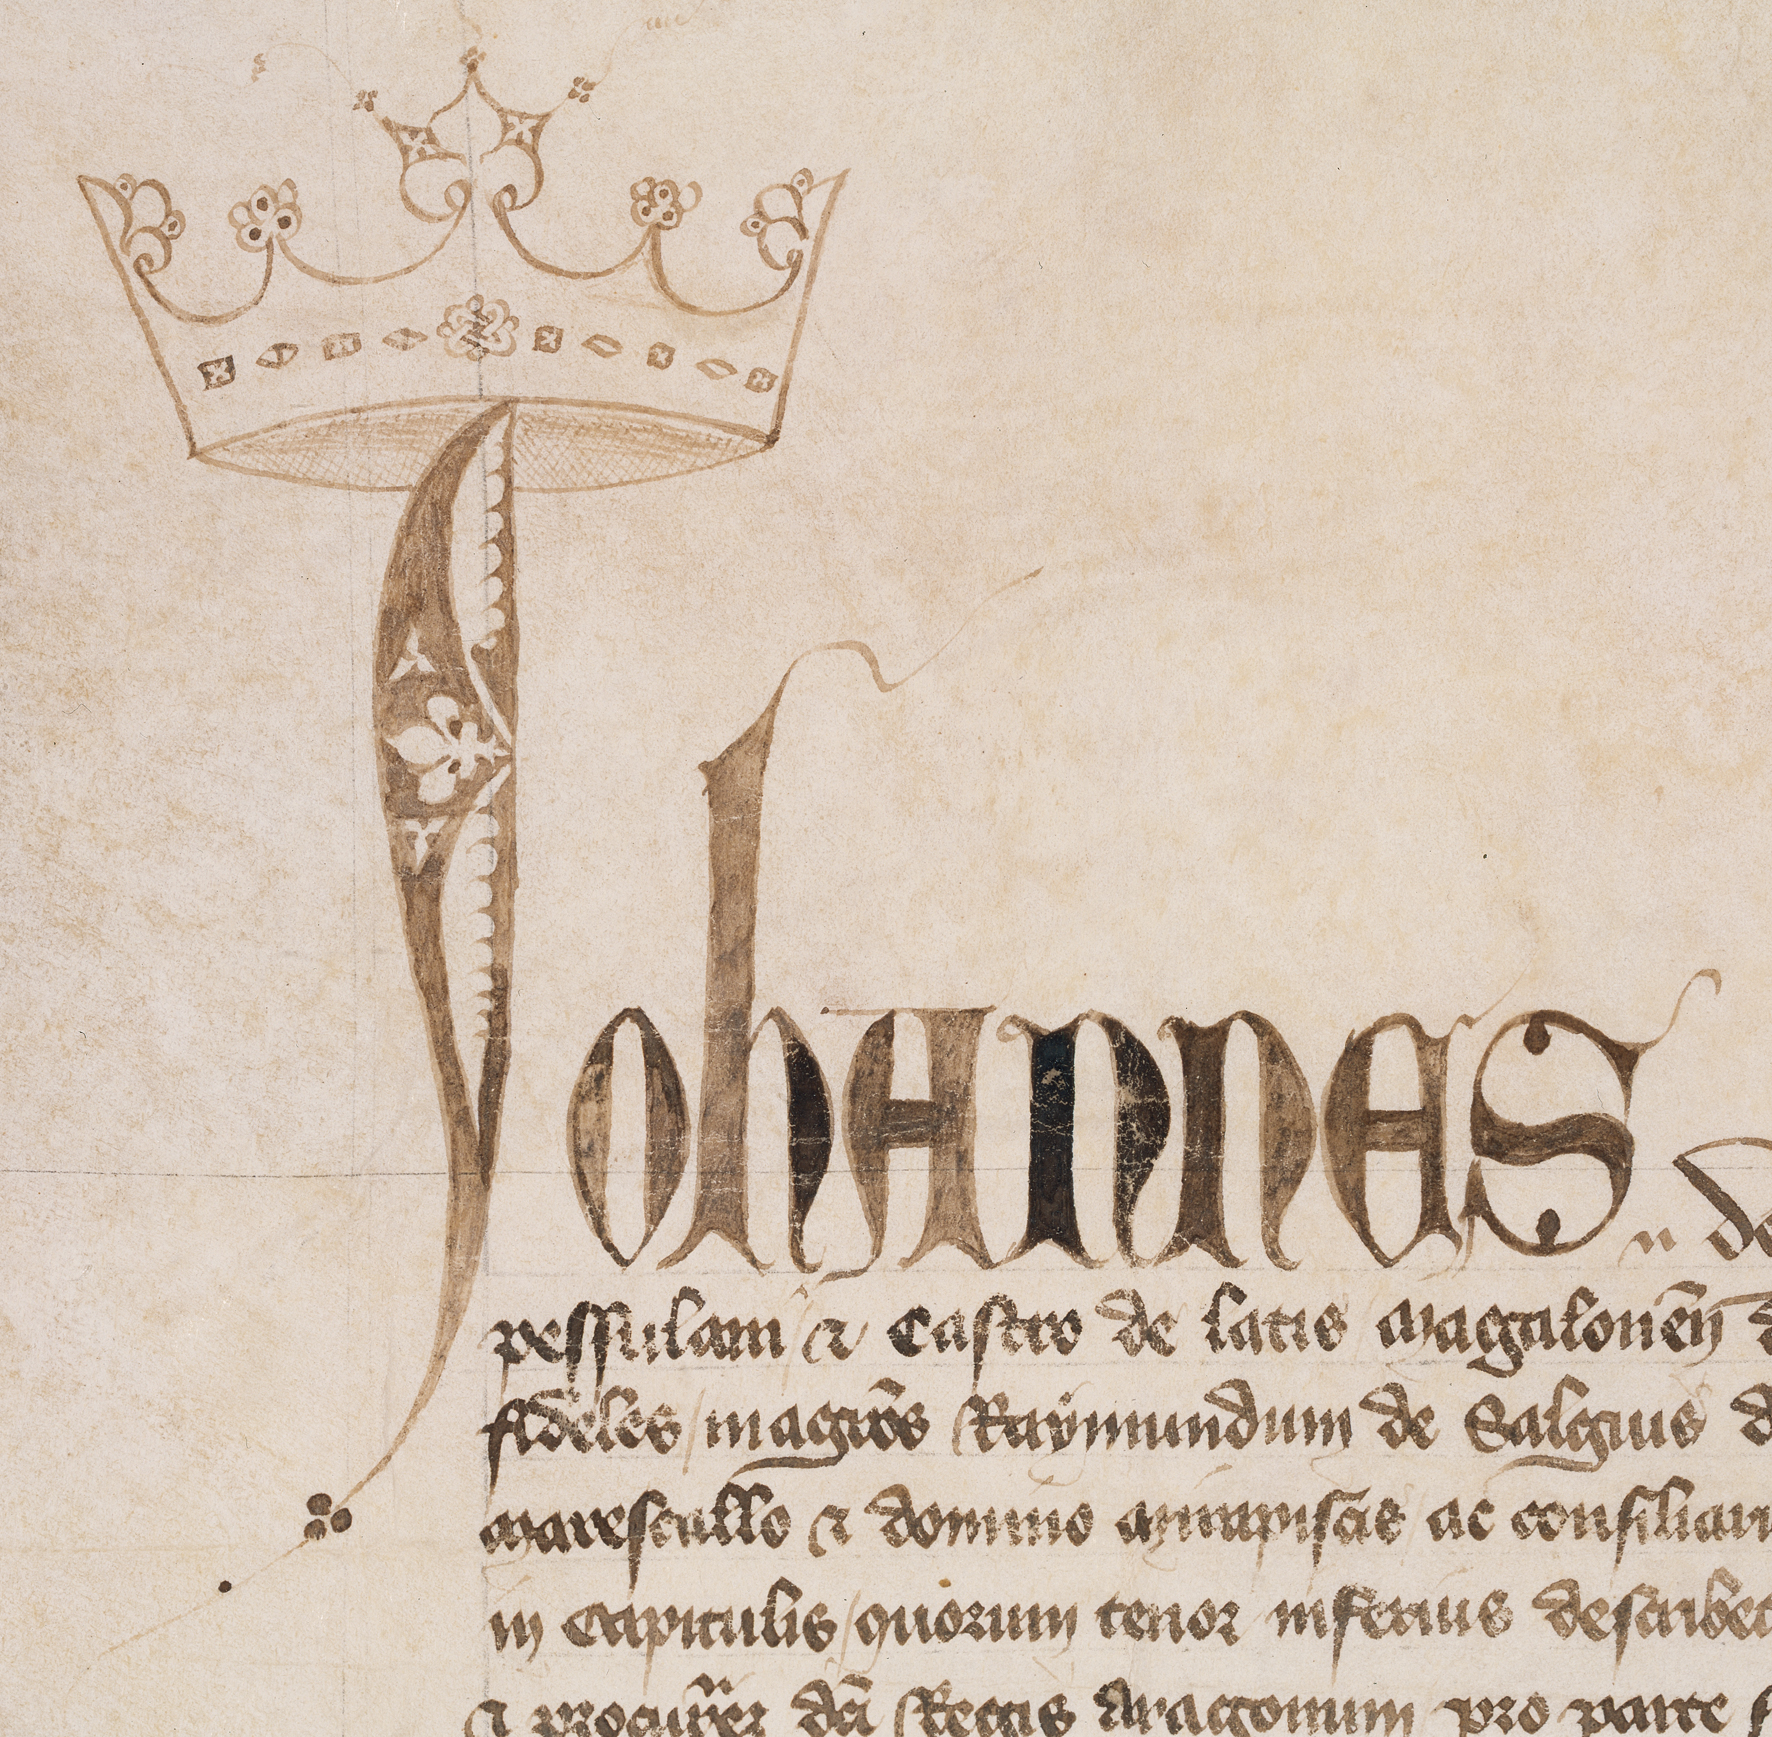 Johannes de
pessulam et Castro de latis Magalonen̄
fideles / magistros Raymundum de Salgiis
Marescallo et domino Mirapiscis ac consiliari
in Capitulis / quorum tenor inferius describet
et procurer dc̄i Regis Aragonum pro parte